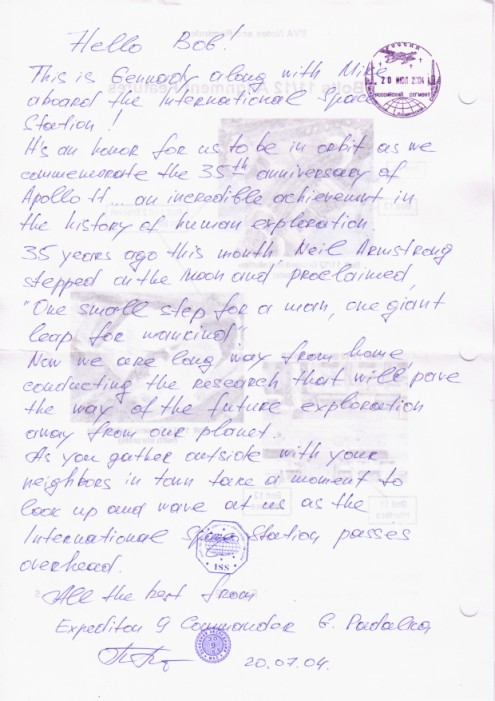 Hello Bob!
This is Gennady along with Mike
aboard the International Space
Station!
It's an honor for us to be in orbit as we
commemorate the 35th anniversary of
Apollo 11... an incredible achievement in
the history of human exploration.
35 years ago this month, Neil Armstrong
stepped on the Moon and proclaimed,
"One small step for a man, one giant
leap for mankind."
Now we are long way from home,
conducting the research that will pave
the way of the future exploration
away from our planet.
As you gather outside with your
neighbors in town take a moment to
look up and wave at us as the
International Space Station passes
overhead.
All the best from
Expedition 9 Commander G. Padalka
20.07.04.
РОССИЯ
20 ИЮЛ 2004
РОССИЙСКИЙ СЕГМЕНТ
ISS